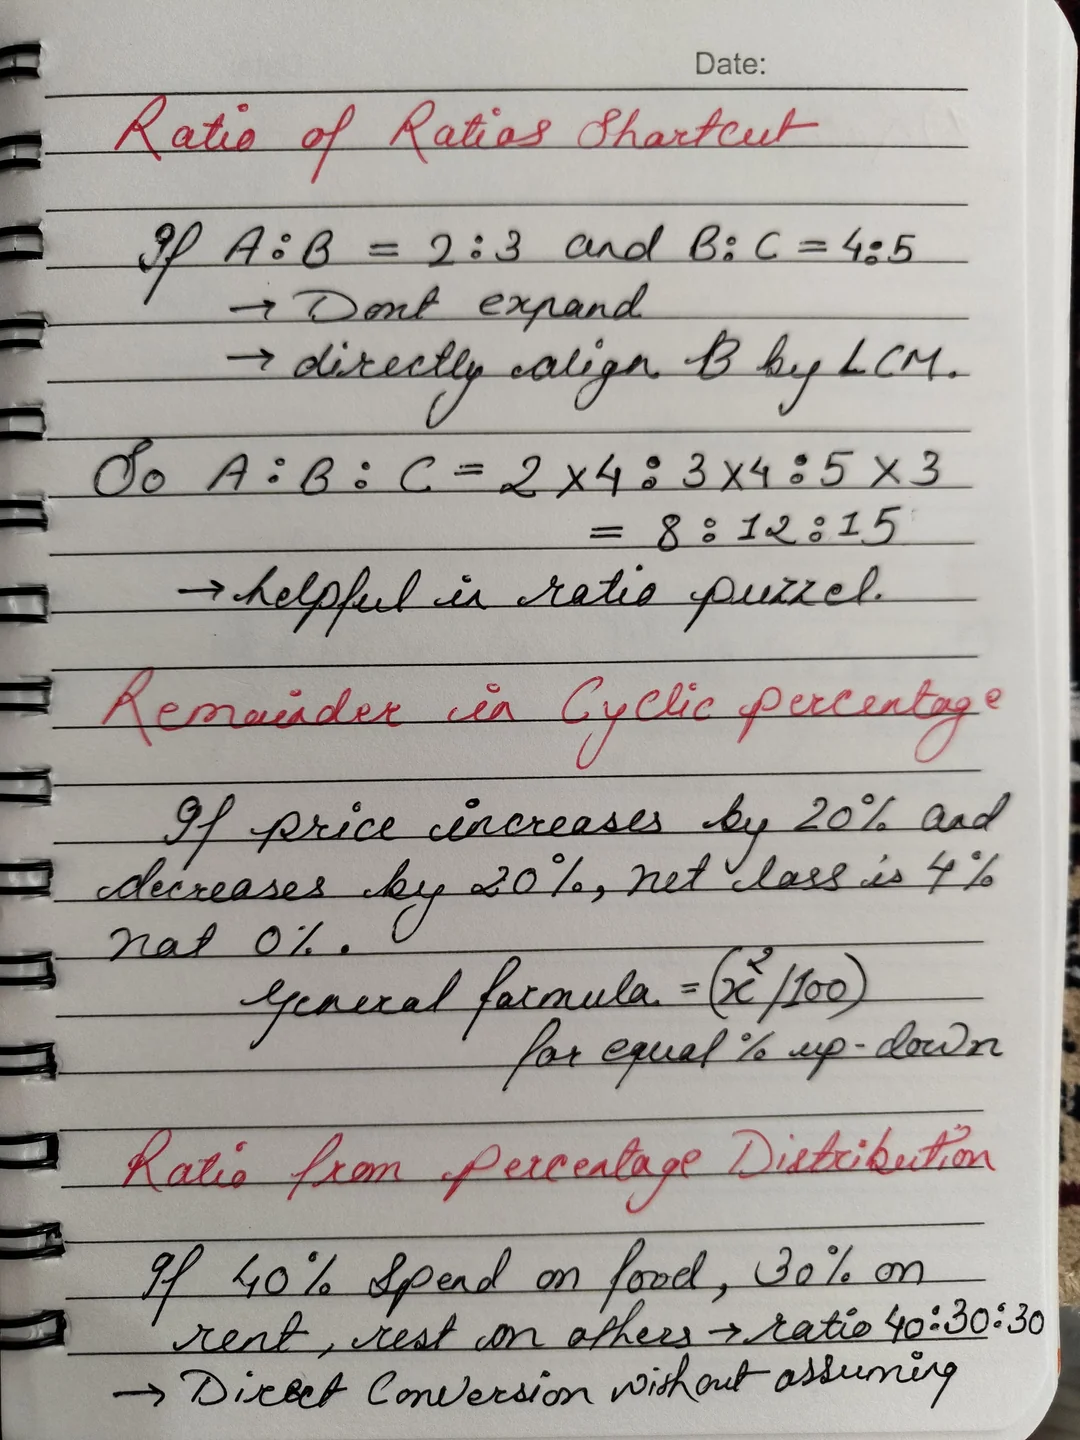 Date:
Ratio of Ratios Shortcut
If A:B = 2:3 and B:C = 4:5
→ Dont expand
→ directly align B by LCM.
So A:B:C = 2×4:3×4:5×3
= 8:12:15
→ helpful in ratio puzzel.
Remainder in Cyclic percentage
If price increases by 20% and
decreases by 20%, net loss is 4%
not 0%.
General formula = (x²/100)
for equal % up-down
Ratio from Percentage Distribution
If 40% Spend on food, 30% on
rent, rest on others → ratio 40:30:30
→ Direct Conversion without assuming